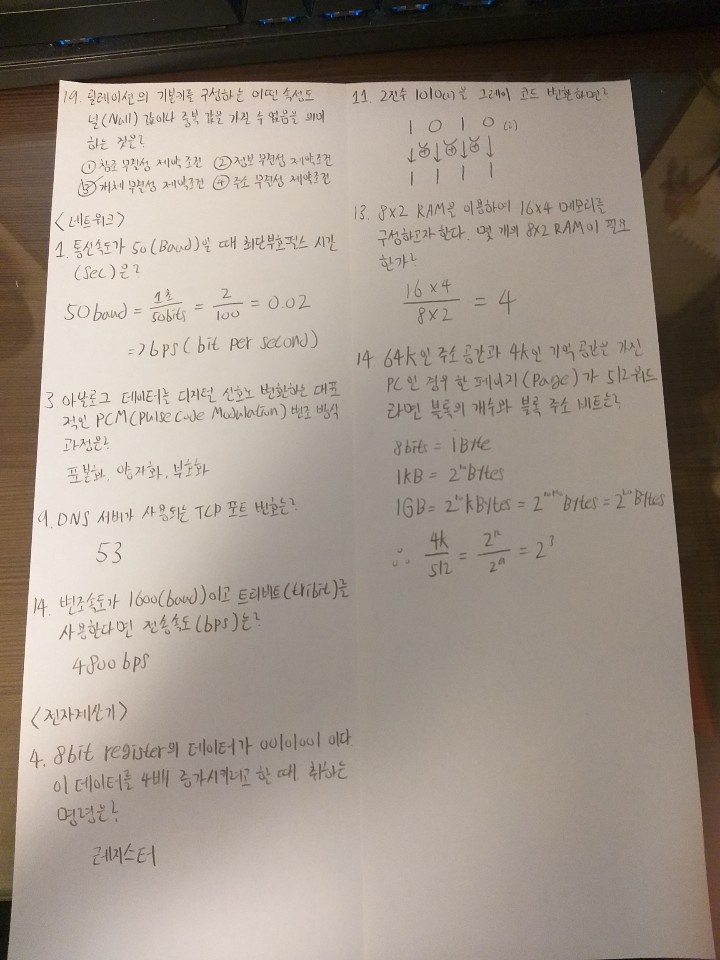 19. 릴레이션의 기본키를 구성하는 어떤 속성도
널(Null) 값이나 중복 값을 가질 수 없음을 의미
하는 것은?
① 참조 무결성 제약 조건 ② 정보 무결성 제약조건
③ 개체 무결성 제약조건 ④ 주소 무결성 제약조건
<네트워크>
1. 통신속도가 50(Baud)일 때 최단부호펄스 시간
(Sec)은?
50baud = 1초/50bits = 2/100 = 0.02
=> bps(bit per second)
3. 아날로그 데이터는 디지털 신호로 변환하는 대표
적인 PCM(Pulse Code Modulation) 변조 방식
과정은?
표본화, 양자화, 부호화
9. DNS 서버가 사용되는 TCP 포트 번호는?
53
14. 변조속도가 1600(baud)이고 트리비트(tribit)를
사용한다면 전송속도(bps)는?
4800bps
<전자계산기>
4. 8bit register의 데이터가 00101001 이다
이 데이터를 4배 증가시키려고 한 때 취하는
명령은?
레지스터
11. 2진수 1010(2)을 그레이 코드 변환하면?
1 0 1 0 (2)
↓⊕↓⊕↓⊕↓
1 1 1 1
13. 8x2 RAM을 이용하여 16x4 메모리를
구성하고자 한다. 몇 개의 8x2 RAM이 필요
한가?
16x4 / 8x2 = 4
14. 64K인 주소공간과 4K인 기억 공간을 가진
PC인 경우 한 페이지(Page)가 512워드
라면 블록의 개수와 블록 주소 비트는?
8bits = 1Byte
1KB = 2^10 Bytes
1GB = 2^20 KBytes = 2^10+20 Bytes = 2^30 Bytes
∴ 4K/512 = 2^12/2^9 = 2^3